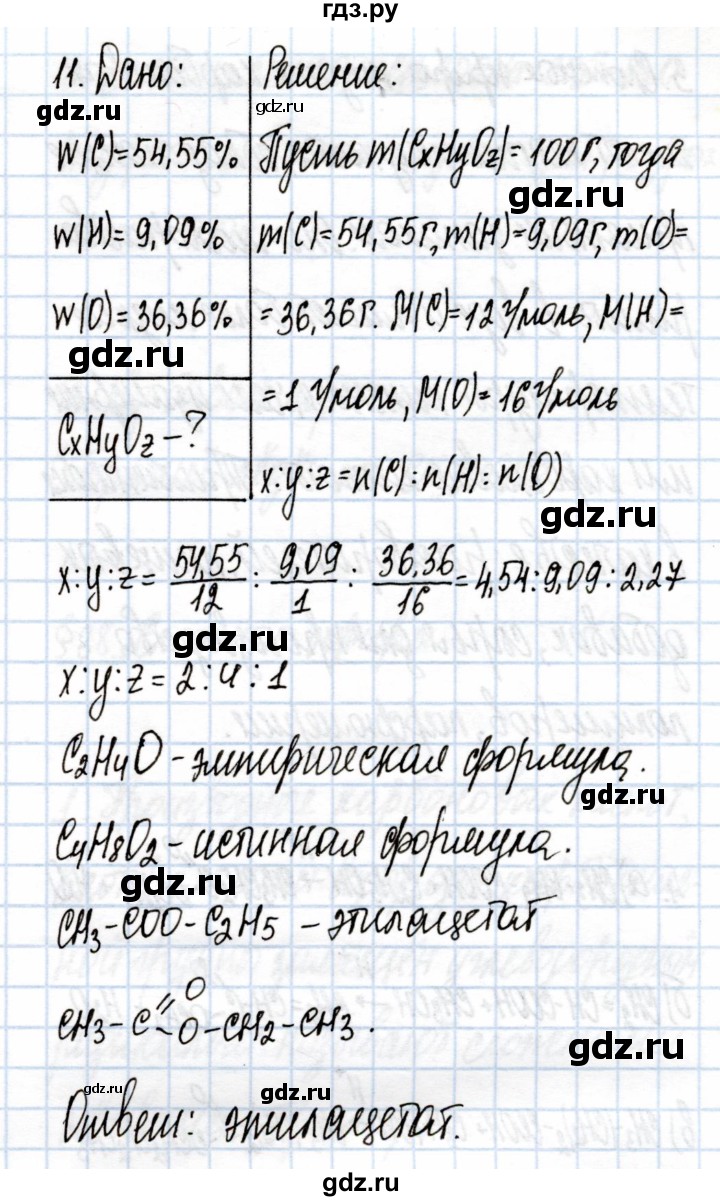 гдз.ру
11. Дано: Решение:
gdz.ru gdz.ru
w(C)=54,55% Пусть m(CxHyOz)=100г, тогда
gdz.ru
w(H)=9,09% m(C)=54,55г, m(H)=9,09г, m(O)=
w(O)=36,36% =36,36г. M(C)=12 г/моль, M(H)=
gdz.ru
=1 г/моль, M(O)=16 г/моль
CxHyOz-?
x:y:z=n(C):n(H):n(O)
gdz.ru
x:y:z= 54,55/12 : 9,09/1 : 36,36/16 =4,54:9,09:2,27
gdz.ru
x:y:z=2:4:1
C2H4O-эмпирическая формула.
gdz.ru
C4H8O2-истинная формула.
gdz.ru
CH3-COO-C2H5 - этилацетат
O
CH3-C O-CH2-CH3.
gdz.ru
gdz.ru gdz.ru
Ответ: этилацетат.
gdz.ru